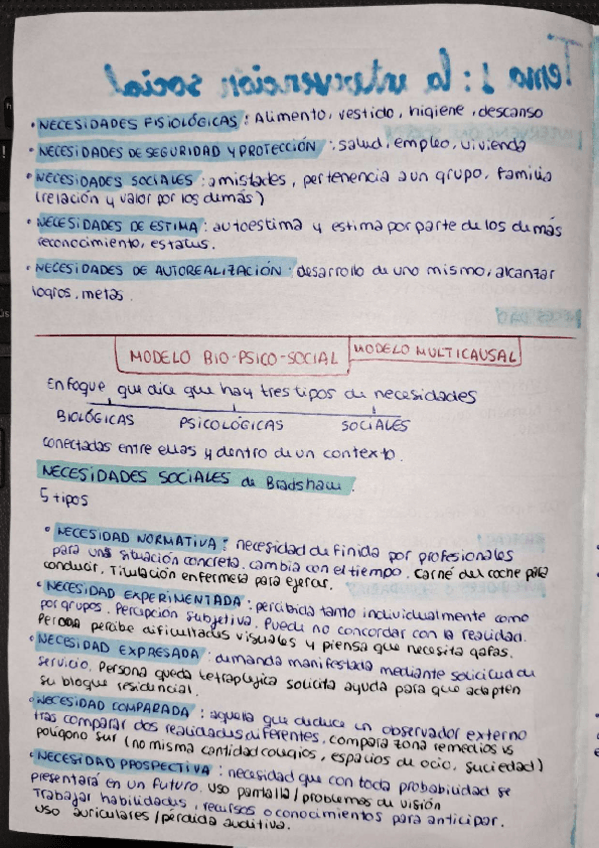 Tema 1: la intervención social
• NECESIDADES FISIOLÓGICAS: Alimento, vestido, higiene, descanso
• NECESIDADES DE SEGURIDAD Y PROTECCIÓN: salud, empleo, vivienda
• NECESIDADES SOCIALES: amistades, pertenencia a un grupo, familia
(relación y valor por los demás)
• NECESIDADES DE ESTIMA: autoestima y estima por parte de los demás
reconocimiento, estatus.
• NECESIDADES DE AUTOREALIZACIÓN: desarrollo de uno mismo, alcanzar
logros, metas.
MODELO BIO-PSICO-SOCIAL MODELO MULTICAUSAL
Enfoque que dice que hay tres tipos de necesidades
BIOLÓGICAS PSICOLÓGICAS SOCIALES
conectadas entre ellas y dentro de un contexto.
NECESIDADES SOCIALES de Bradshaw.
5 tipos
• NECESIDAD NORMATIVA: necesidad definida por profesionales
para una situación concreta, cambia con el tiempo. Carné del coche para
conducir. Titulación enfermera para ejercer.
• NECESIDAD EXPERIMENTADA: percibida tanto individualmente como
por grupos. Percepción subjetiva. Puede no concordar con la realidad.
Persona percibe dificultades visuales y piensa que necesita gafas.
• NECESIDAD EXPRESADA: demanda manifestada mediante solicitud de
servicio. Persona queda tetrapléjica solicita ayuda para que adapten
su bloque residencial.
• NECESIDAD COMPARADA: aquella que deduce un observador externo
tras comparar dos realidades diferentes. compara zona remedios vs
polígono sur (no misma cantidad colegios, espacios de ocio, suciedad)
• NECESIDAD PROSPECTIVA: necesidad que con toda probabilidad se
presentará en un futuro. uso pantalla/problemas de visión
Trabajar habilidades, recursos o conocimientos para anticipar.
uso auriculares/pérdida auditiva.